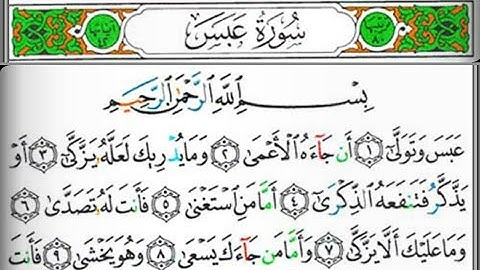 سُورَةُ عَبَسَ
بِسْمِ اللَّهِ الرَّحْمَٰنِ الرَّحِيمِ
عَبَسَ وَتَوَلَّىٰ ١ أَن جَآءَهُ الْأَعْمَىٰ ٢ وَمَا يُدْرِيكَ لَعَلَّهُ يَزَّكَّىٰ ٣ أَوْ
يَذَّكَّرُ فَتَنفَعَهُ الذِّكْرَىٰ ٤ أَمَّا مَنِ اسْتَغْنَىٰ ٥ فَأَنتَ لَهُ تَصَدَّىٰ ٦
وَمَا عَلَيْكَ أَلَّا يَزَّكَّىٰ ٧ وَأَمَّا مَن جَآءَكَ يَسْعَىٰ ٨ وَهُوَ يَخْشَىٰ ٩ فَأَنتَ